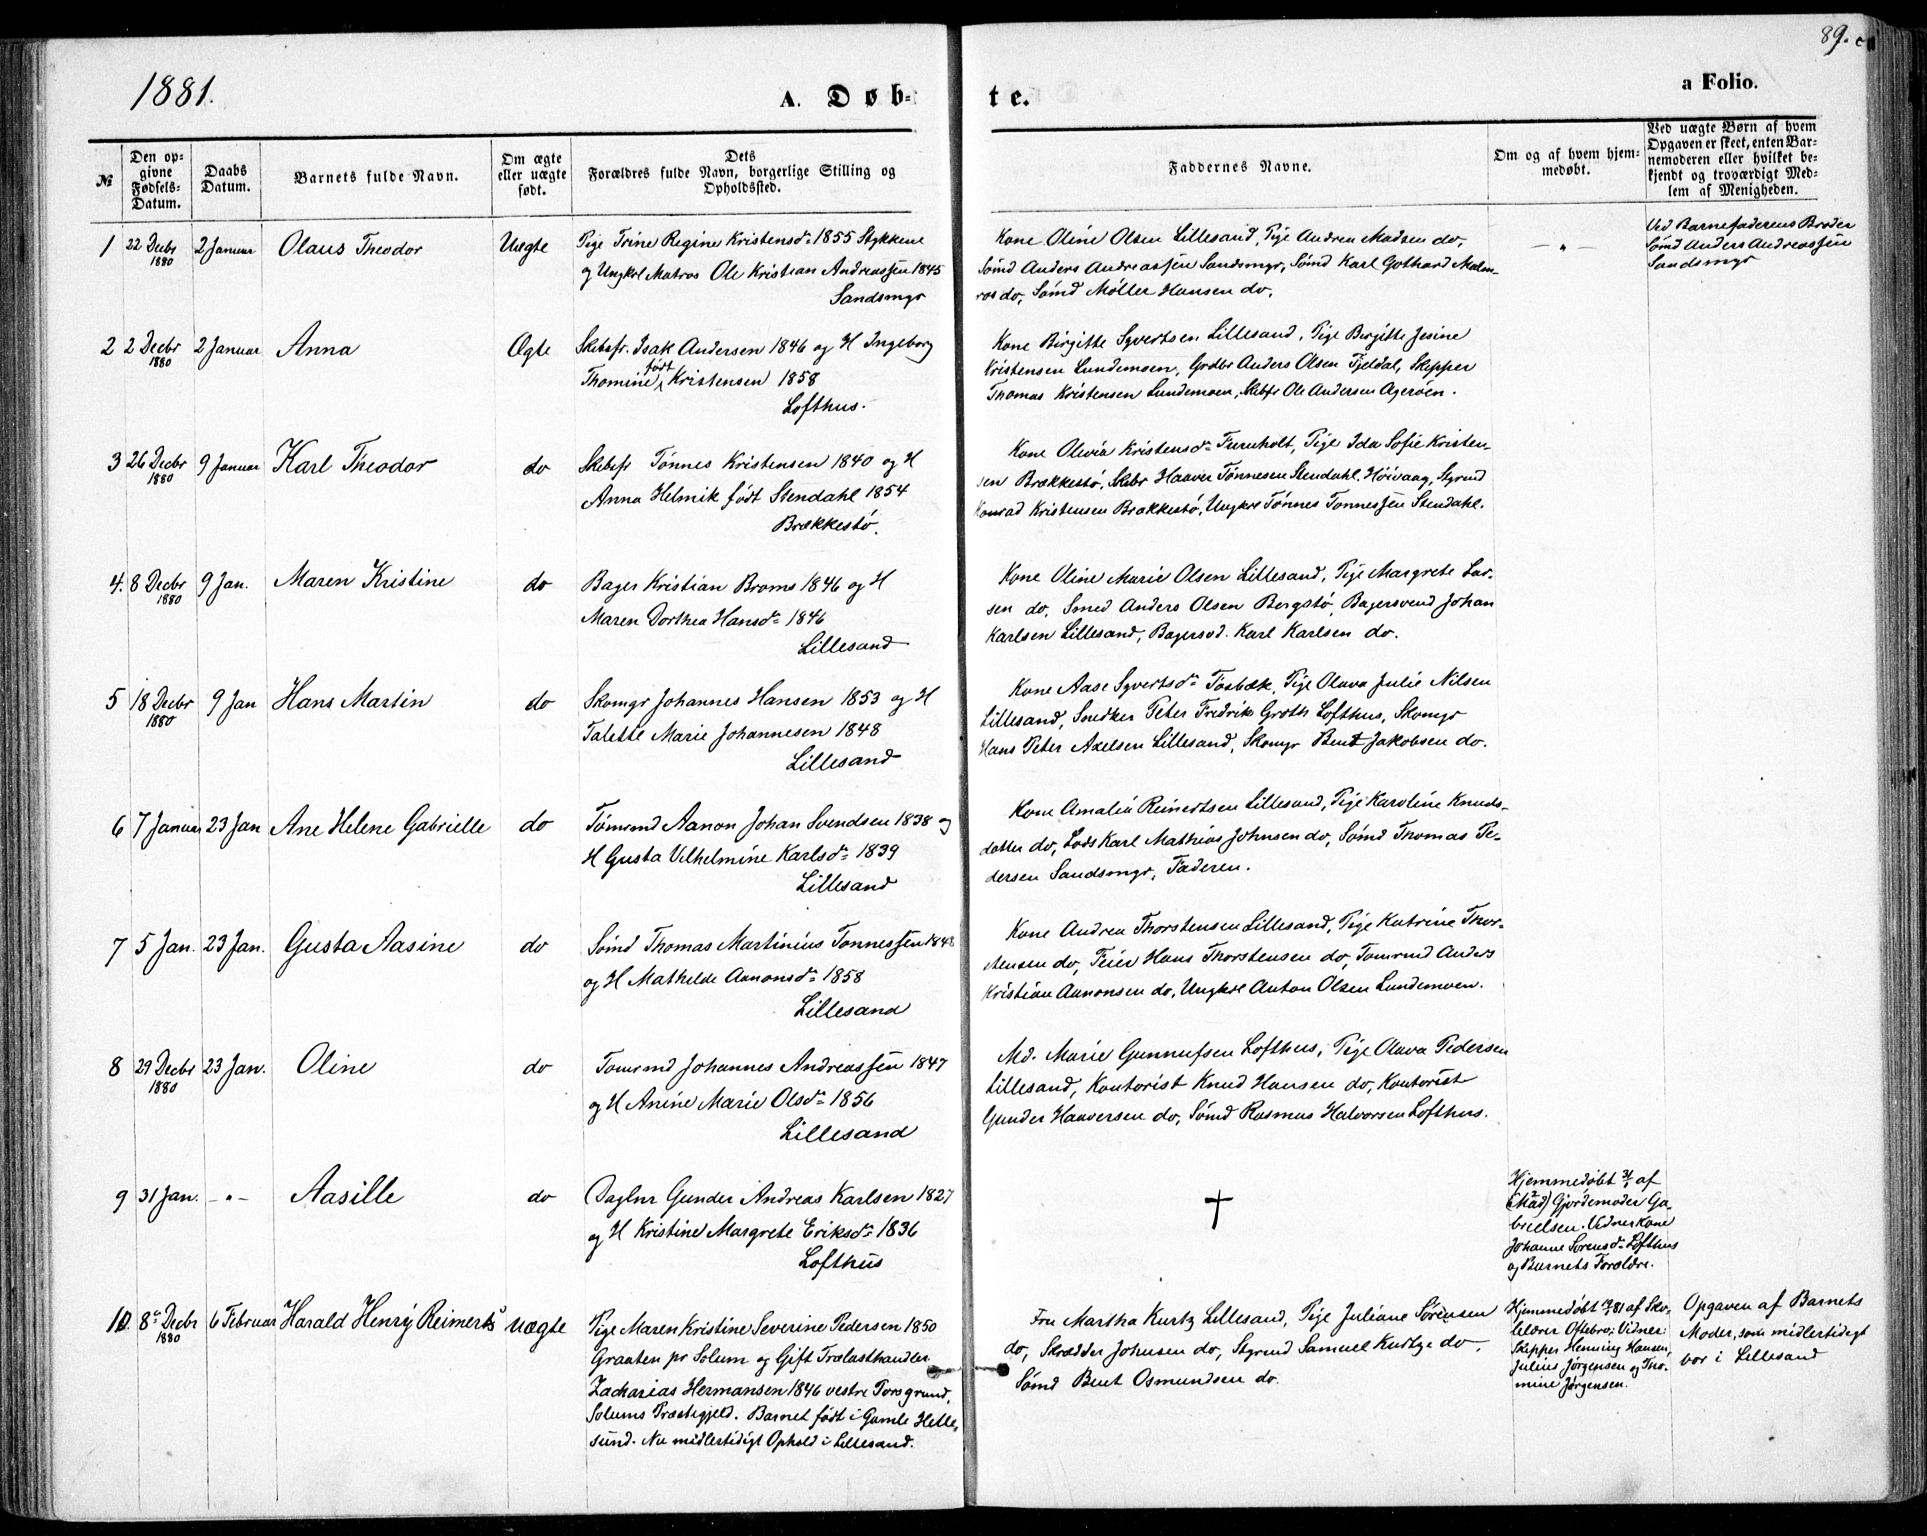 89.
1881.
A. Døb-
te.
a Folio.
№
Den op-
givne
Fødsels-
Datum.
Daabs
Datum.
Barnets fulde Navn.
Om ægte
eller uægte
født.
Dets
Forældres fulde Navn, borgerlige Stilling og
Opholdssted.
Faddernes Navne.
Om og af hvem hjem-
medøbt.
Ved uægte Børn af hvem
Opgaven er skeet, enten Bar-
nemoderen eller hvilket be-
kjendt og troværdigt Med-
lem af Menigheden.
1 22 Decbr 1880 2 Januar Olaus Theodor Uægte
Pige Trine Regine Kristensdr 1855 Stykkene
og Ungkrl Matros Ole Kristian Andreassen 1845
Sandsmyr
Kone Oline Olsen Lillesand, Pige Andrea Madsen do,
Sømd Anders Andreassen Sandsmyr, Sømd Karl Gothard Malm-
ros do, Sømd Møller Hansen do.
— " —
Ved Barnefaderens Broder
Sømd Anders Andreassen
Sandsmyr
2 2 Decbr 1880 2 Januar Anna Ægte
Skibsfr. Isak Andersen 1846 og H Ingeborg
Thomine født Kristensen 1858
Lofthus.
Kone Birgitte Syvertsen Lillesand, Pige Bergitte Jesine
Kristensen Lundemoen, Grdbr Anders Olsen Fjeldal, Skipper
Thomas Kristensen Lundemoen, Skbsfr Ole Andersen Agerøen.
3 26 Decbr 1880 9 Januar Karl Theodor do
Skbsfr Tønnes Kristensen 1840 og H
Anna Helmik født Stendahl 1854
Brækkestø.
Kone Olevia Kristensdr Furuholt, Pige Ida Sofie Kristen-
sen Brækkestø, Skbr Haaver Tønnesen Stendahl, Høivaag, Styrmd
Konrad Kristensen Brækkestø, Ungkrl Tønnes Tønnessen Stendahl.
4. 8 Decbr 1880 9 Jan. Maren Kristine do
Bager Kristian Broms 1846 og H
Maren Dorthea Hansdr 1846
Lillesand
Kone Oline Marie Olsen Lillesand, Pige Margrete Lar-
sen do, Smed Anders Olsen Bergstø, Bagersvend Johan
Karlsen Lillesand, Bagersvd. Karl Karlsen do.
5 18 Decbr 1880 9 Jan Hans Martin do
Skomgr Johannes Hansen 1853 og H
Talette Marie Johannesen 1848
Lillesand
Kone Aase Syvertsdr Fosbæk, Pige Olava Julie Nilsen
Lillesand, Snedker Peter Fredrik Groth Lofthus, Skomgr
Hans Peter Axelsen Lillesand, Skomgr Bent Jakobsen do.
6 7 Januar 23 Jan Ane Helene Gabrielle do
Tømrmd Aanon Johan Svendsen 1838 og
H Gusta Vilhelmine Karlsdr 1839
Lillesand
Kone Amalia Reinertsen Lillesand, Pige Karoline Knuds-
datter do, Lods Karl Mathias Johnsen do, Sømd Thomas Pe-
dersen Sandsmyr, Faderen.
7 5 Jan. 23 Jan. Gusta Aasine do
Sømd Thomas Martinius Tønnessen 1848
og H Mathilde Aanonsdr 1858
Lillesand
Kone Andrea Thorstensen Lillesand, Pige Katrine Thor-
stensen do, Feier Hans Thorstensen do, Tømrmd Anders
Kristian Aanonsen do, Ungkrl Anton Olsen Lundemoen.
8 29 Decbr 1880 23 Jan. Oline do
Tømrmd Johannes Andreassen 1847
og H Anine Marie Olsdr 1856
Lillesand
Md. Marie Gunnufsen Lofthus, Pige Olava Pedersen
Lillesand, Kontorist Knud Hansen do, Kontorist
Gunder Haaversen do, Sømd Rasmus Halvorsen Lofthus.
9 31 Jan. — " — Aasille do
Daglnr Gunder Andreas Karlsen 1827
og H Kristine Margrete Eriksdr 1836
Lofthus
†
Hjemmedøbt 31/1 af
(Mad) Gjordemoder Ga-
brielsen. Vidner Kone
Johanne Sørensdr Lofthus
og Barnets Forældre.
10. 8 Decbr 1880 6 Februar Harald Henry Reimerts Uægte
Pige Maren Kristine Severine Pedersen 1850
Graaten pr Solum og Gift Trælasthandler
Zacharias Hermansen 1846 vestre Porsgrund,
Solums Præstegjeld. Barnet født i Gamle Helle-
sund. Nu midlertidigt Ophold i Lillesand.
Fru Martha Kurtz Lillesand, Pige Juliane Sørensen
do, Skrædder Johnsen do, Styrmd Samuel Kirtbye do,
Sømd Bent Osmundsen do.
Hjemmedøbt 81 af Sko-
lelærer Oftebro; Vidner:
Skipper Henning Hansen,
Julius Jørgensen og Tho-
mine Jørgensen.
Opgaven af Barnets
Moder, som midlertidigt
bor i Lillesand